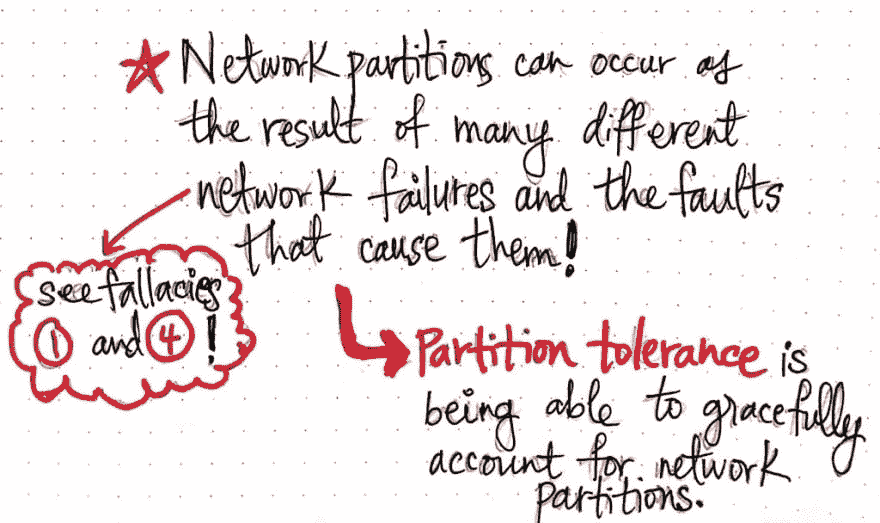 Network partitions can occur as
the result of many different
network failures and the faults
that cause them!
see fallacies
1 and 4!
Partition tolerance is
being able to gracefully
account for network
partitions.